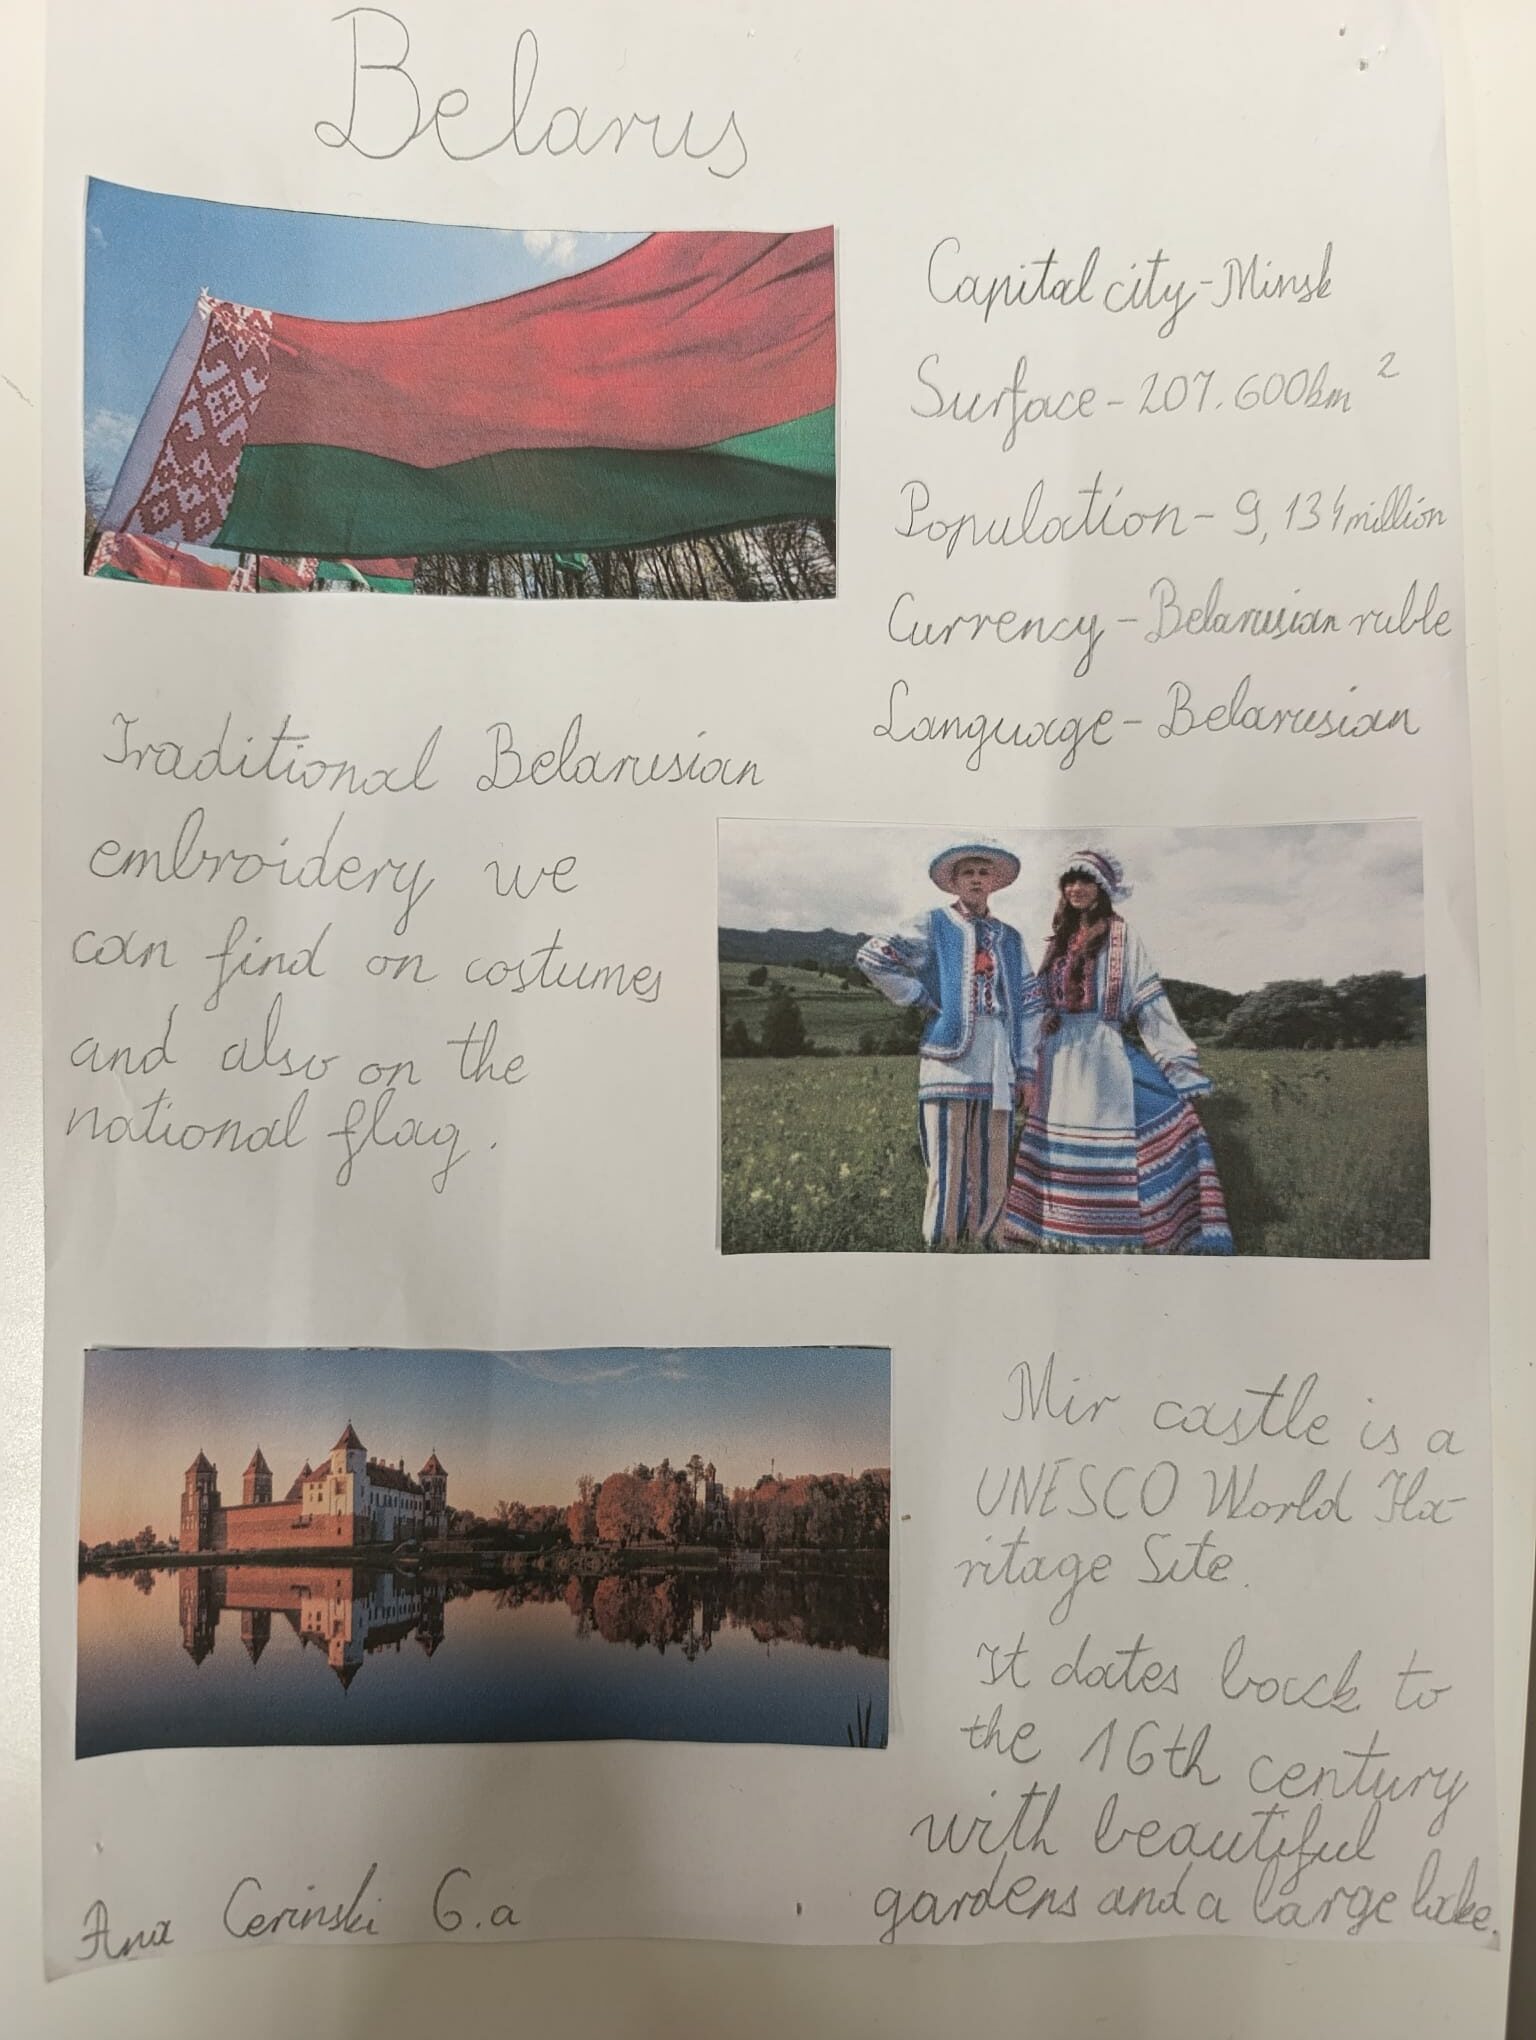 Belarus
Capital city-Minsk
Surface-207.600km²
Population-9,134million
Currency-Belarusian ruble
Language-Belarusian
Traditional Belarusian
embroidery we
can find on costumes
and also on the
national flag.
Mir castle is a
UNESCO World Ha-
ritage Site.
It dates back to
the 16th century
with beautiful
gardens and a large lake.
Ana Cerinski 6.a